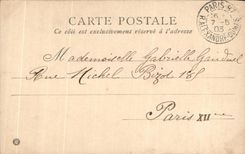 CARTE POSTALE
Ce côté est exclusivement réservé à l'adresse
PARIS
7 -5
03
R. ALEXANDRE
Mademoiselle Gabrielle
Rue Michel Bizot
Paris XIIème